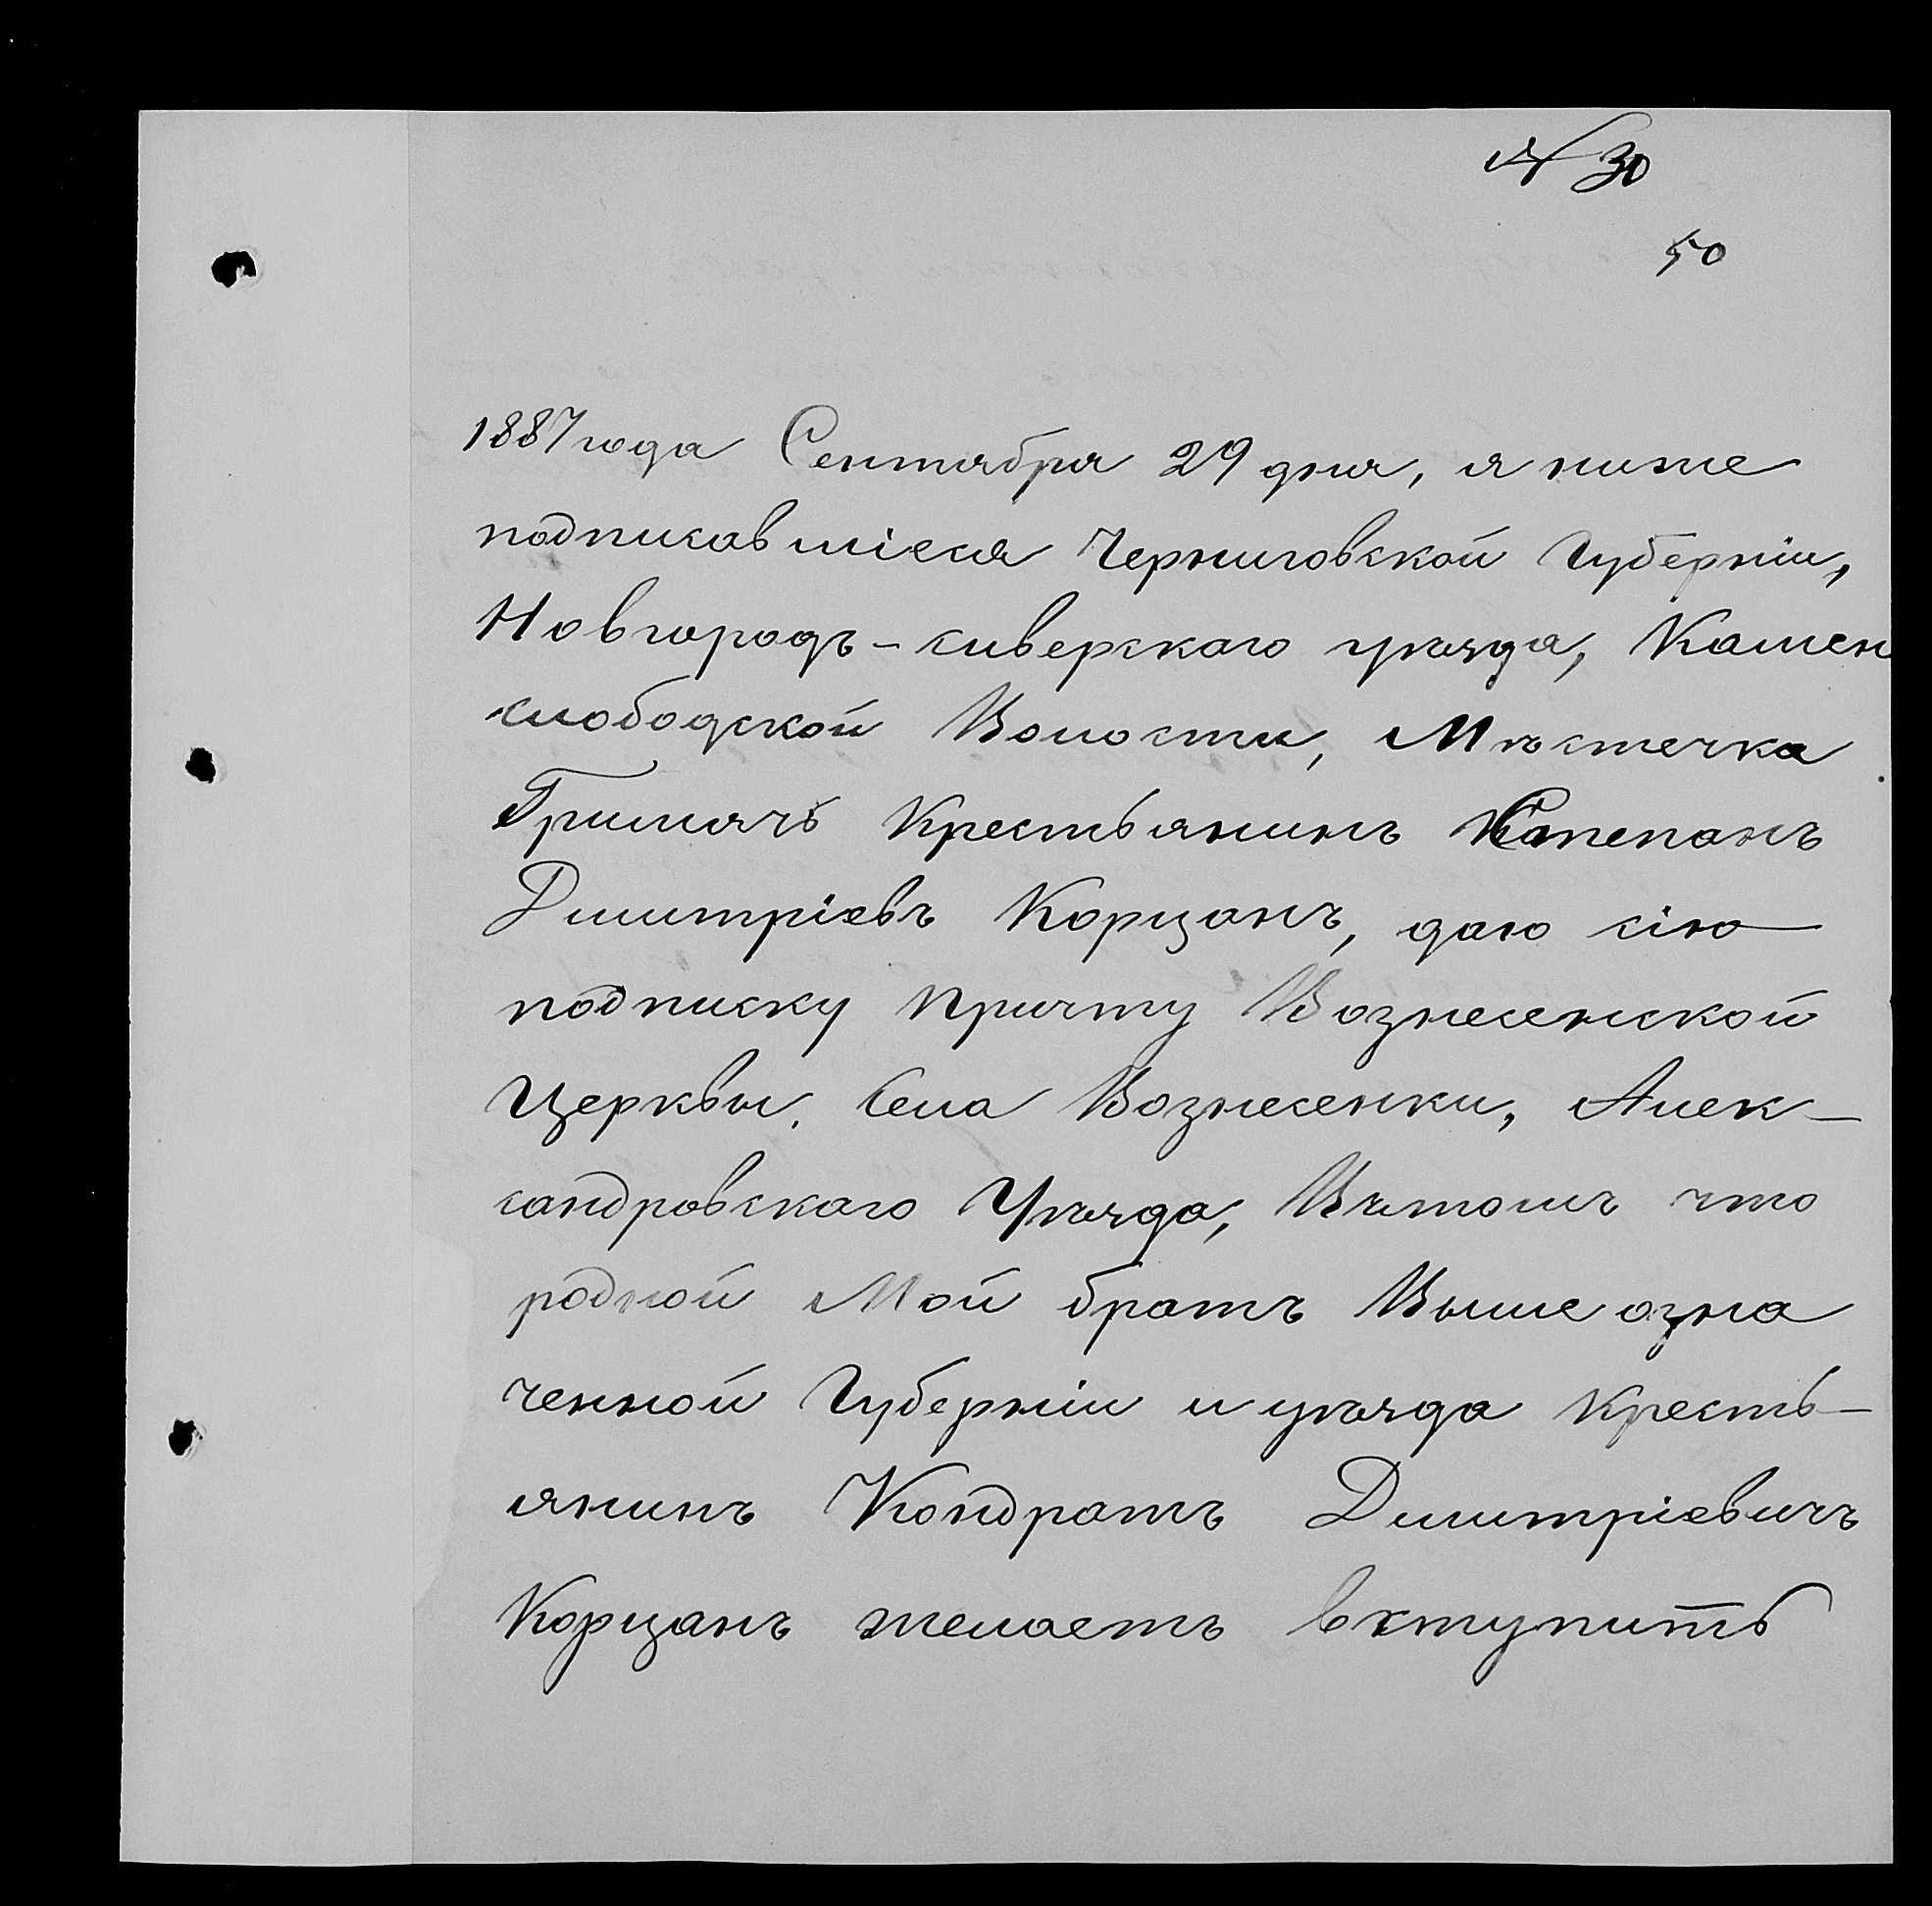 № 30
50
1887 года Сентября 29 дня, я ниже
подписавшіеся Черниговской Губерніи,
Новгородъ-сиверскаго уѣзда, Камен
слободской Волости, Мѣстечка
Гримячъ Крестьянинъ Степанъ
Дмитріевъ Корцанъ, даю сію
подписку причту Вознесенской
Церквы, Села Вознесенки, Алек-
сандровскаго Уѣзда, Вътомъ что
родной Мой братъ Выше озна
ченной Губерніи и уѣзда Кресть-
янинъ Кондратъ Дмитріевичъ
Корцанъ желаетъ вступить